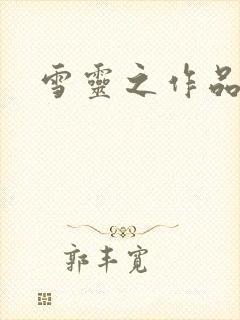 雪靈之作品
郭丰寛